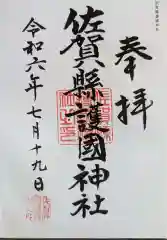 奉拝
佐賀縣護國神社
令和六年七月十九日